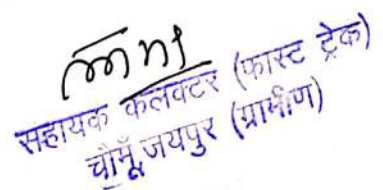 सहायक कलेक्टर (फास्ट ट्रेक)
चौमूँ, जयपुर (ग्रामीण)